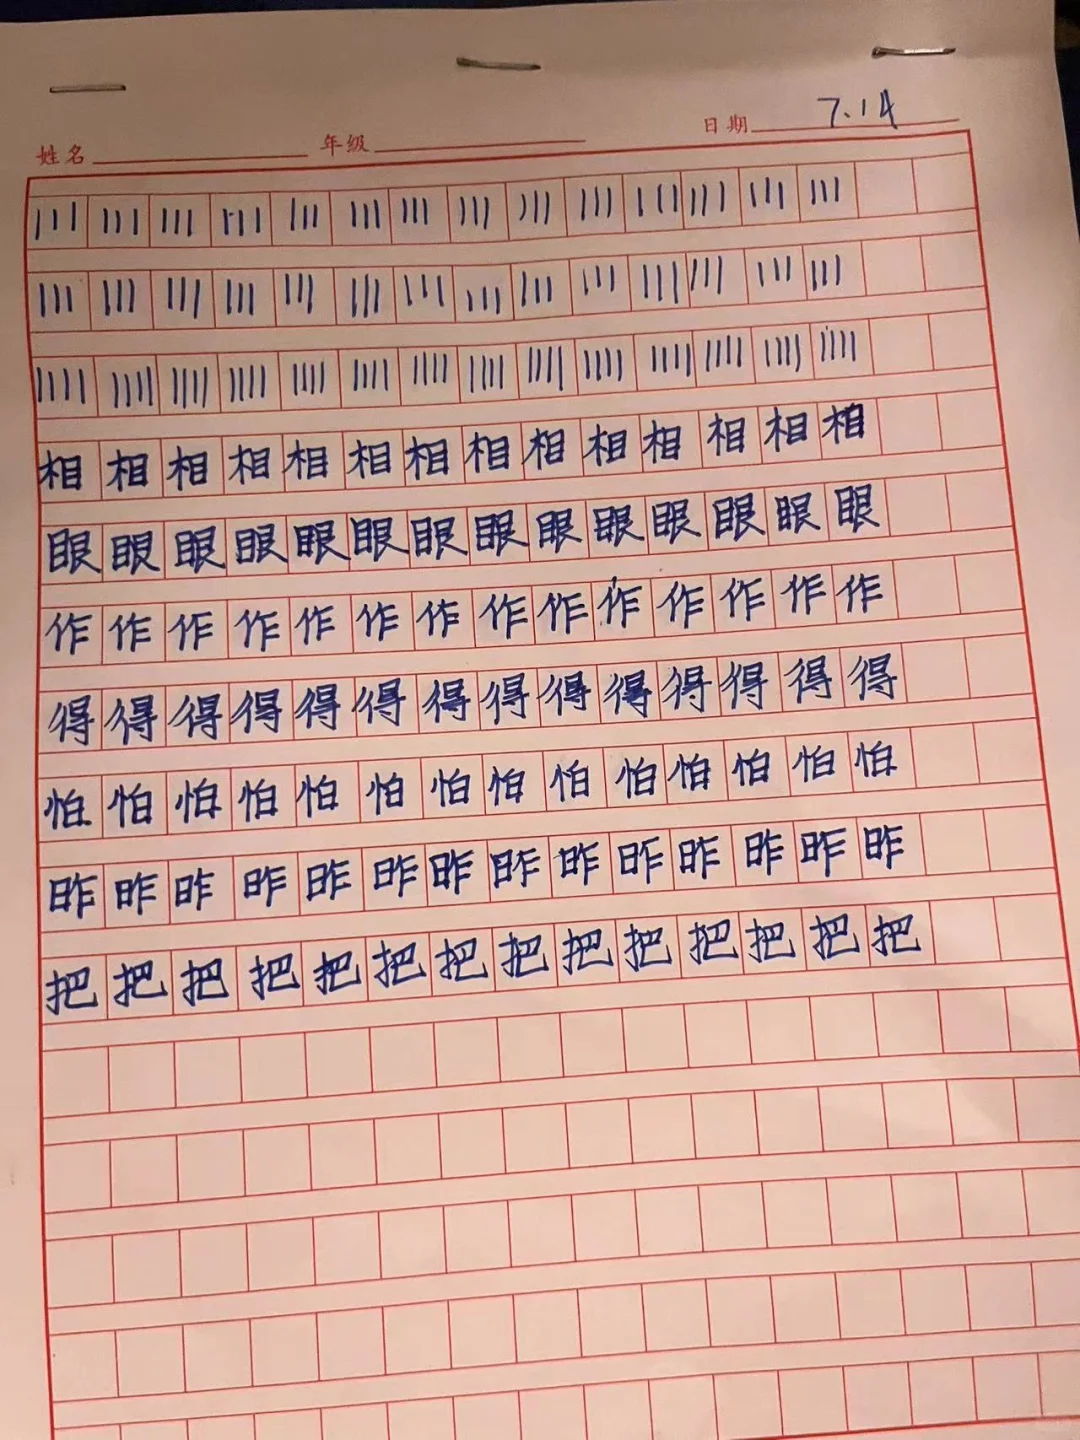 姓名 年级 日期 7.14
相相相相相相相相相相相相相相
眼眼眼眼眼眼眼眼眼眼眼眼眼眼
作作作作作作作作作作作作作作
得得得得得得得得得得得得得得
怕怕怕怕怕怕怕怕怕怕怕怕怕怕
昨昨昨昨昨昨昨昨昨昨昨昨昨昨
把把把把把把把把把把把把把把